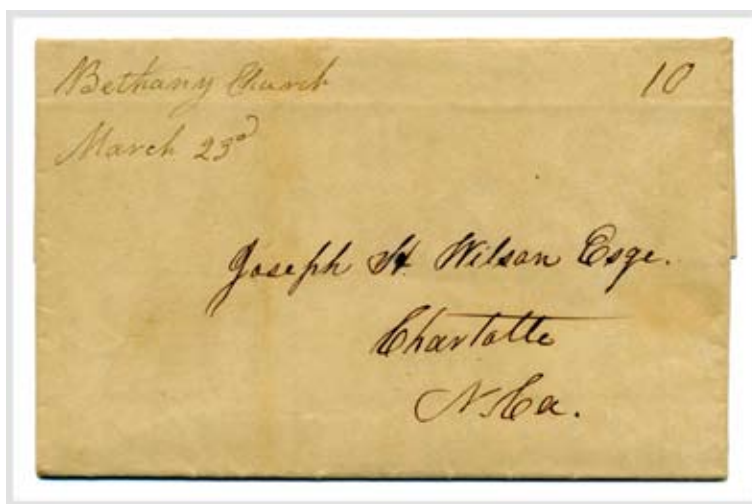 Bethany Church 10
March 23d
Joseph H Wilson Esqe.
Charlotte
N. Ca.